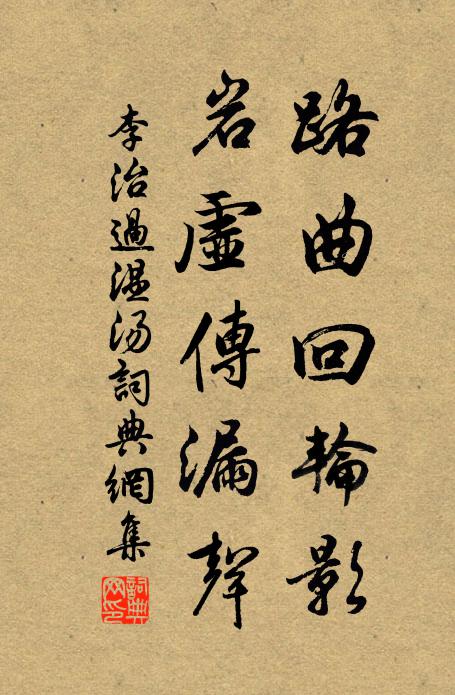 路曲回輪影
岩虛傳漏聲
李治過温汤詞典網集
詞典网印